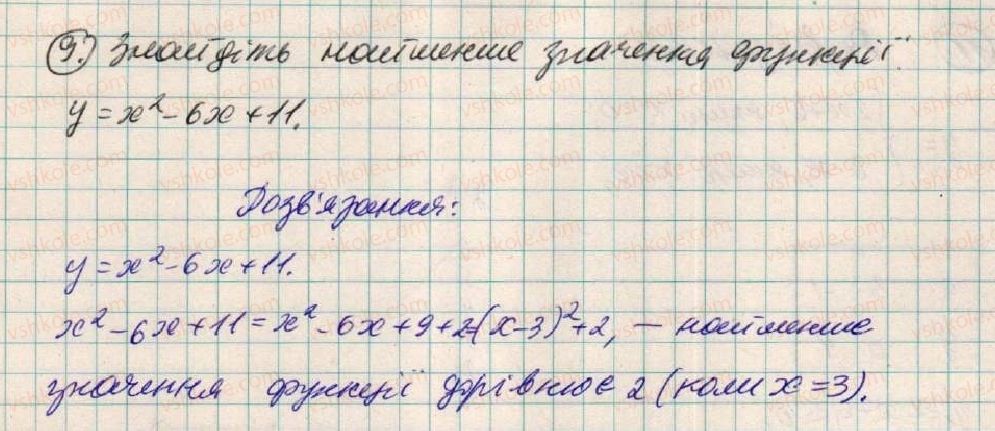 9. Знайдіть найменше значення функції
y = x² - 6x + 11.
Розв'язання:
y = x² - 6x + 11.
x² - 6x + 11 = x² - 6x + 9 + 2 = (x - 3)² + 2, — найменше
значення функції дорівнює 2 (коли x = 3).